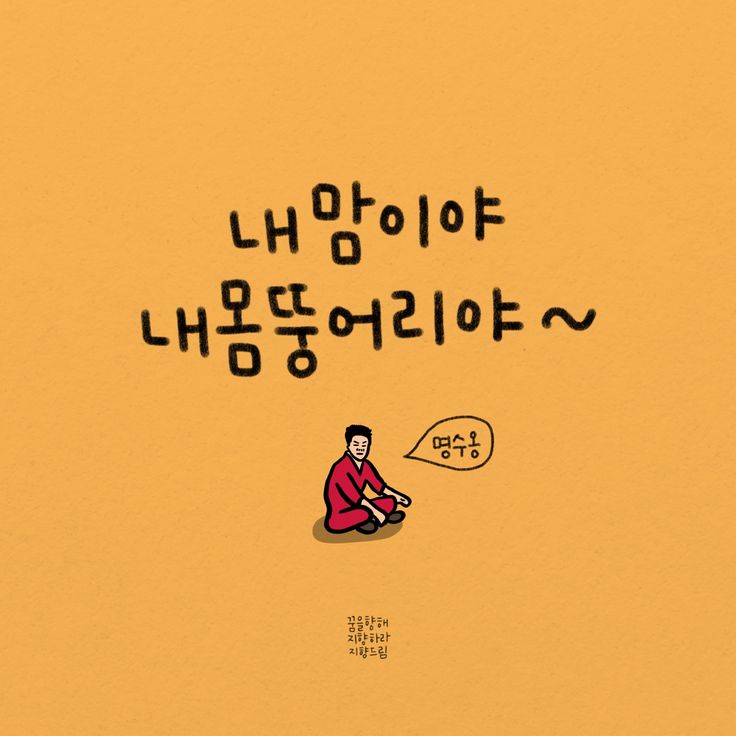 내 맘이야
내 몸뚱어리야~
명수옹
꿈을향해
지향하라
지향드림